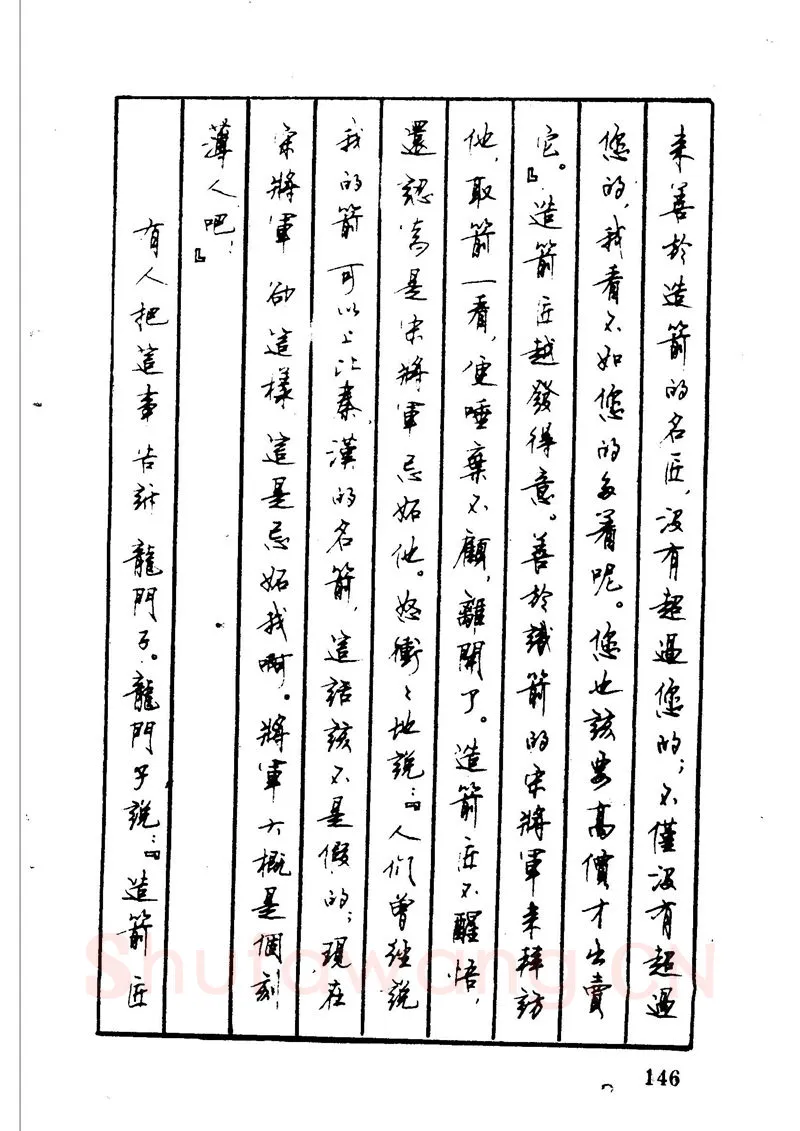 来善於造箭的名匠，沒有超過您的；不僅沒有超過
您的，我看不如您的多着呢。您也該要高價才出賣
它。』造箭匠越發得意。善於識箭的宋將軍来拜訪
他，取箭一看，便唾棄不顧，離開了。造箭匠不醒悟，
還認為是宋將軍忌妬他。怒衝々地說：『人们曾經說
我的箭可以上比秦、漢的名箭，這話該不是假的；現在
宋將軍卻這樣這是忌妬我啊。將軍大概是個刻
薄人吧！』
有人把這事告訴龍門子。龍門子說：『造箭匠
146
Shufawang.CN